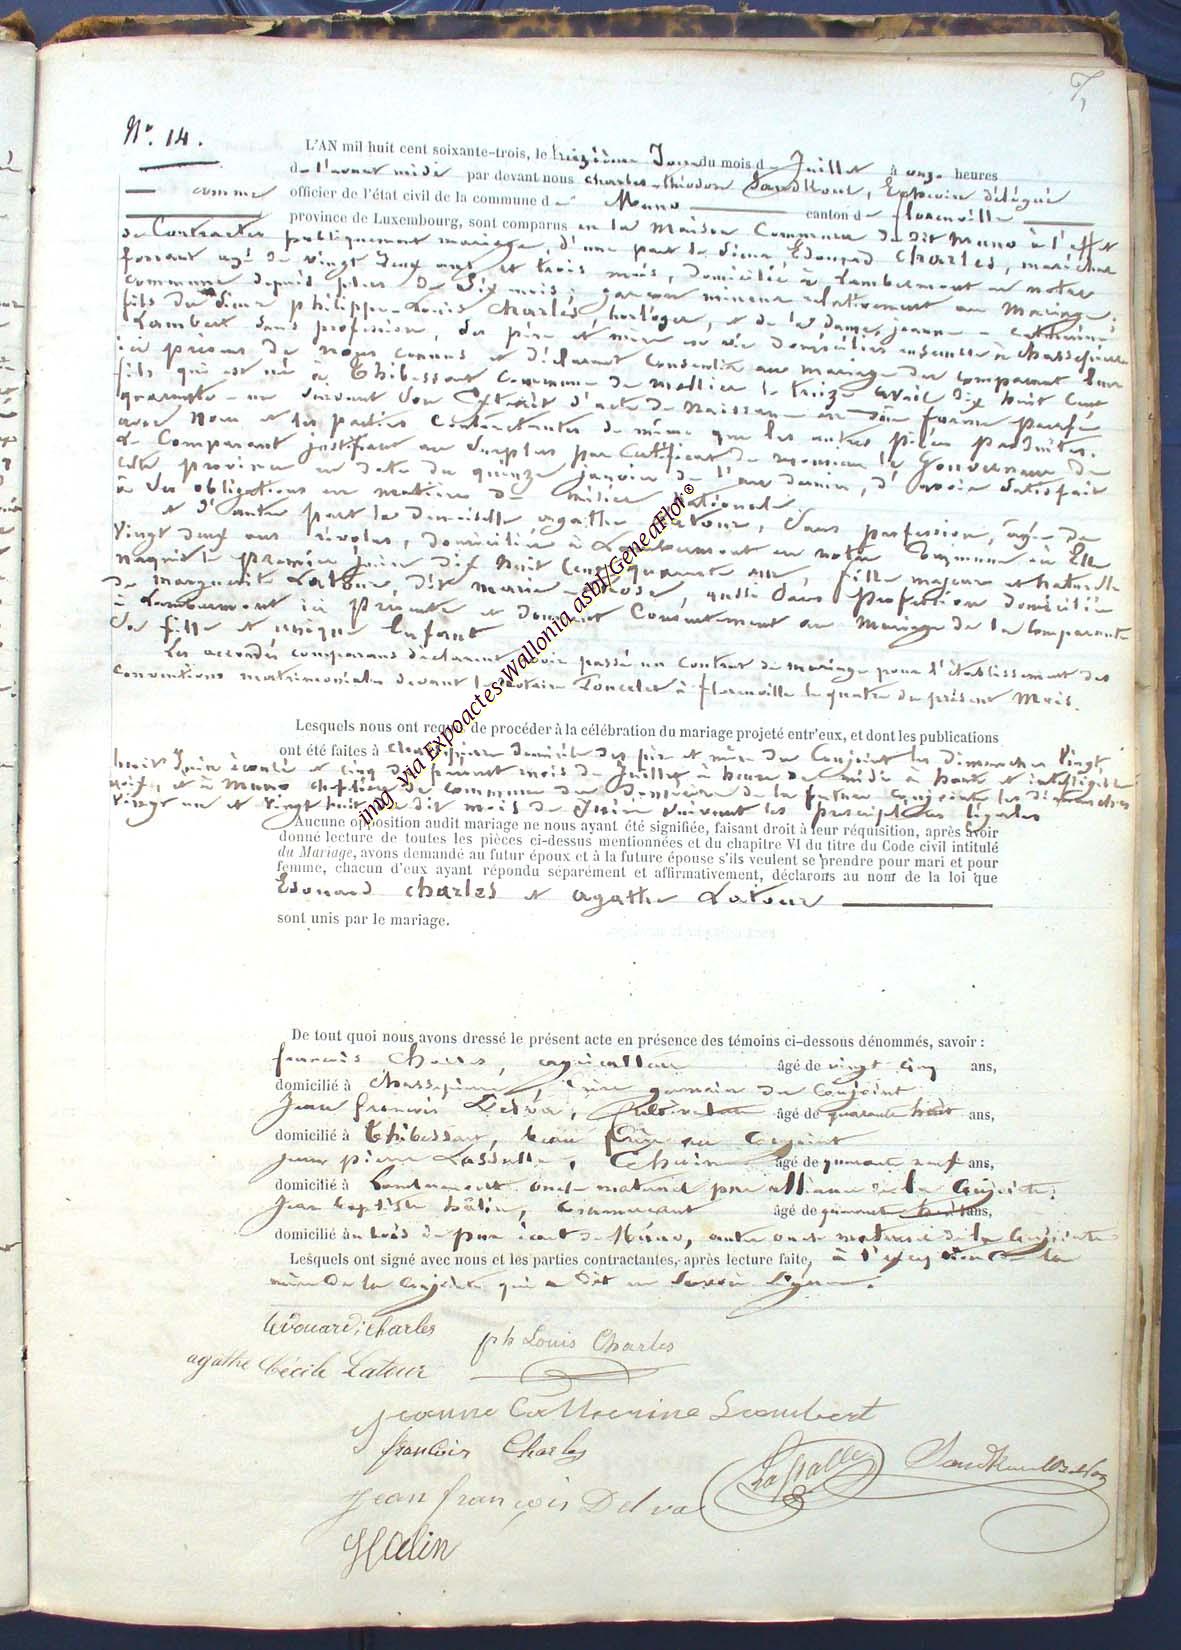 7,
N° 14.
L'AN mil huit cent soixante-trois, le treizième Jour du mois de Juillet à onze heures
de l'avant midi par devant nous charles-théodore Sandkoul, Echevin délégué
comme officier de l'état civil de la commune de Muno canton de florenville
province de Luxembourg, sont comparus en la Maison Commune du dit Muno à l'effet
de Contracter publiquement mariage, d'une part le sieur Edouard charles, maréchal
ferrant agé de vingt deux ans et trois mois, domicilié à Lambermont en notre
commune depuis plus de six mois, garçon mineur relativement au Mariage,
fils du sieur philippe-Louis Charles, horloger, et de la dame, jeanne-catherine
Lambert sans profession, ses père et mère en vie domiciliés ensemble à Chassepierre
ici présens de nous connus et déclarant consentir au mariage du comparant leur
fils qui est né à Thibessart commune de mellier le treize avril dix huit cent
quarante-un suivant son Extrait d'acte de Naissance en due forme paraphé
avec Nous et les parties Contractantes de même que les autres pièces produites.
Le Comparant justifiant au surplus par Certificat de monsieur le Gouverneur de
cette province en date du quinze janvier de l'an dernier, d'avoir satisfait
à ses obligations en matière de milice Nationale
et d'autre part la demoiselle agathe Latour, sans profession, agée de
vingt deux ans révolus, domiciliée à Lambermont en notre Commune où Elle
naquit le premier juin dix huit cent quarante un, fille majeure et naturelle
de marguerite Latour, dit marie-Rose, aussi sans profession domiciliée
à Lambermont ici présente et donnant Consentement au Mariage de la Comparante
sa fille et unique Enfant
Les accordés comparans déclarent avoir passé un contrat de mariage pour l'établissement des
conventions matrimoniales devant le Notaire Poncelet à florenville le quatre du présent Mois.
Lesquels nous ont requis de procéder à la célébration du mariage projeté entr'eux, et dont les publications
ont été faites à Chassepierre domicile des père et mère du Conjoint les dimanches vingt
huit Juin écoulé et cinq du présent mois de Juillet à heure de midi à haute et intelligible
voix, et à Muno chef-lieu de commune du domicile de la future conjointe les dimanches
vingt un et vingt huit du dit mois de Juin suivant les prescriptions légales
Aucune opposition audit mariage ne nous ayant été signifiée, faisant droit à leur réquisition, après avoir
donné lecture de toutes les pièces ci-dessus mentionnées et du chapitre VI du titre du Code civil intitulé
du Mariage, avons demandé au futur époux et à la future épouse s'ils veulent se prendre pour mari et pour
femme, chacun d'eux ayant répondu séparément et affirmativement, déclarons au nom de la loi que
Edouard charles et agathe Latour
sont unis par le mariage.
De tout quoi nous avons dressé le présent acte en présence des témoins ci-dessous dénommés, savoir :
françois Charles, agriculteur âgé de vingt cinq ans,
domicilié à Chassepierre frère germain du Conjoint
Jean françois Delva, âgé de quarante huit ans,
domicilié à Thibessart, beau frère au Conjoint
jean pierre Lassalle, Echevin âgé de quarante neuf ans,
domicilié à Lambermont oncle maternel par alliance de la Conjointe;
Jean baptiste hâlin, âgé de ans,
domicilié à écart de Muno, autre oncle maternel de la Conjointe
Lesquels ont signé avec nous et les parties contractantes, après lecture faite, à l'exception de la
mère de la Conjointe qui a dit ne savoir Signer.
Edouard; charles
ph Louis Charles
agathe Cécile Latour
jeanne Catherine Lambert
françois Charles
Lassalle
Jean françois Delva
Halin
img via Expoactes-Wallonia asbl/GeneaFlo!©